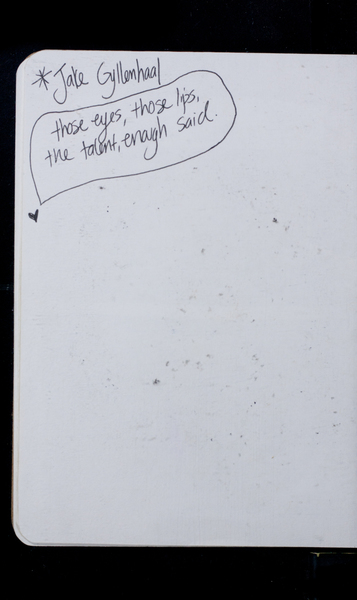 *Jake Gyllenhaal
those eyes, those lips,
the talent, enough said.